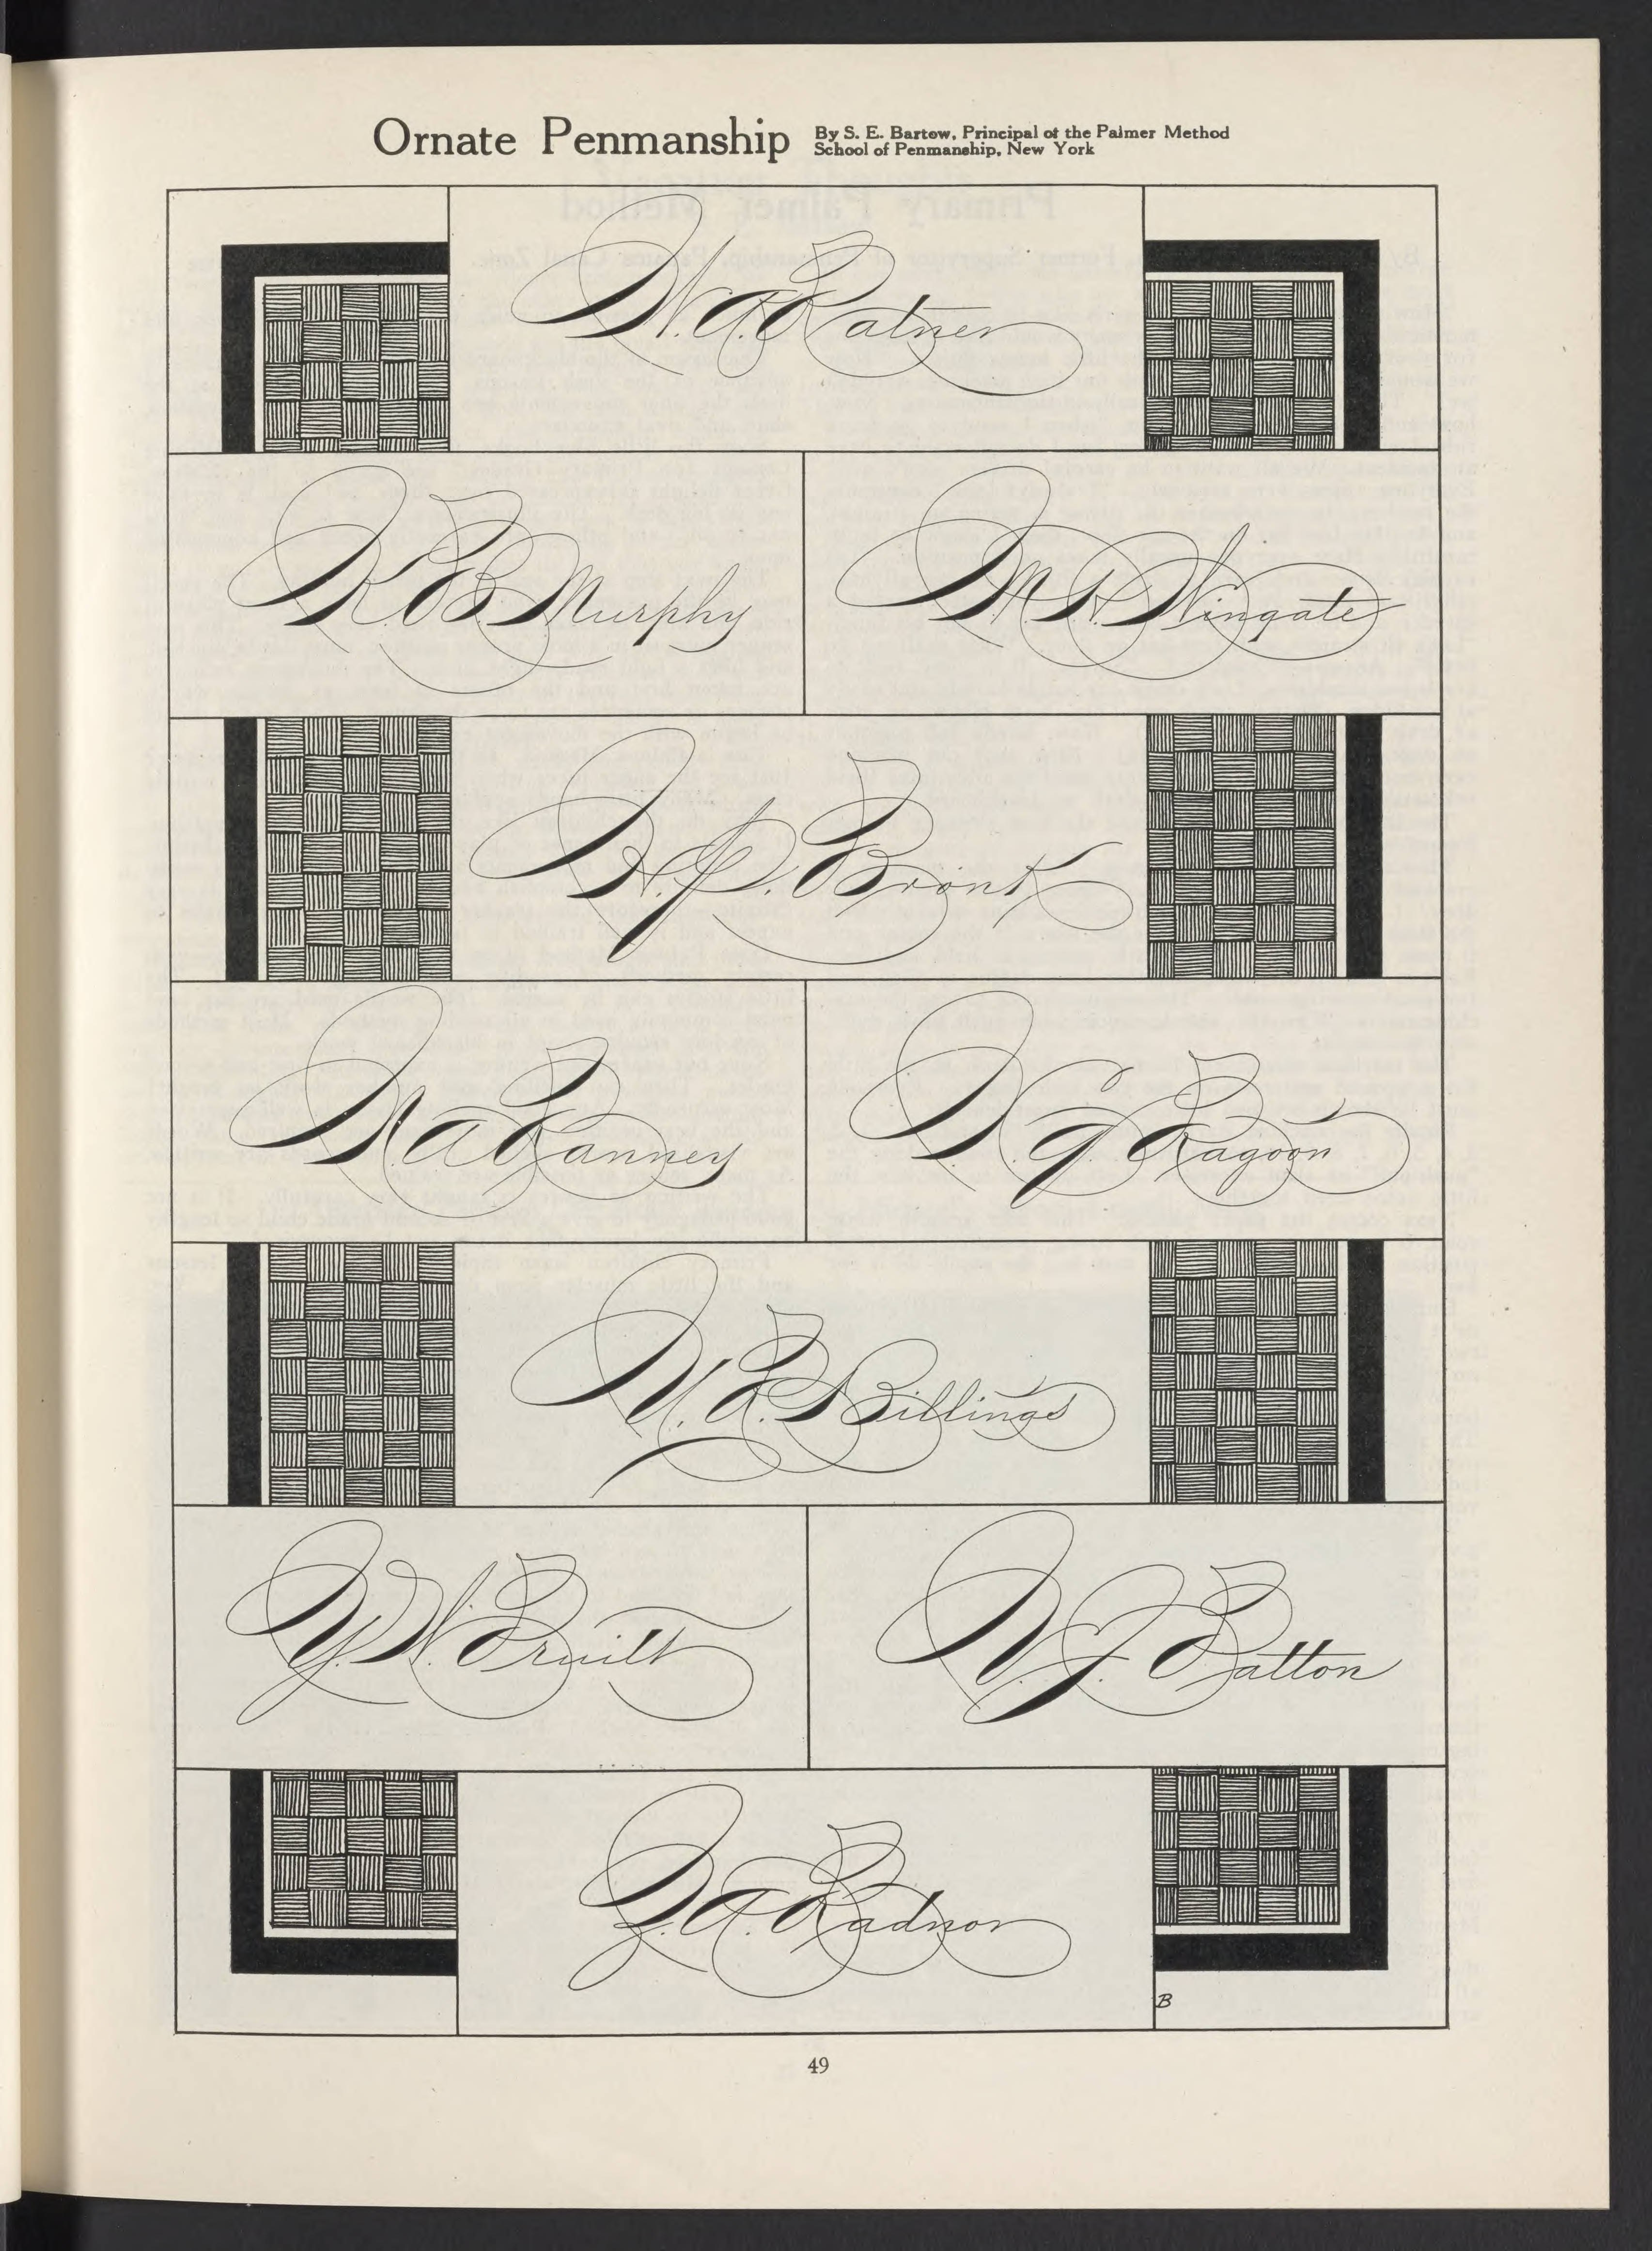 Ornate Penmanship
By S. E. Bartow, Principal of the Palmer Method
School of Penmanship, New York
W. A. Ratner
K. B. Murphy
M. N. Wingate
Bronk
N. A. Ranney
Ragoon
Billings
Y. W. Pruitt
V. J. Patton
Z. A. Radnor
B
49